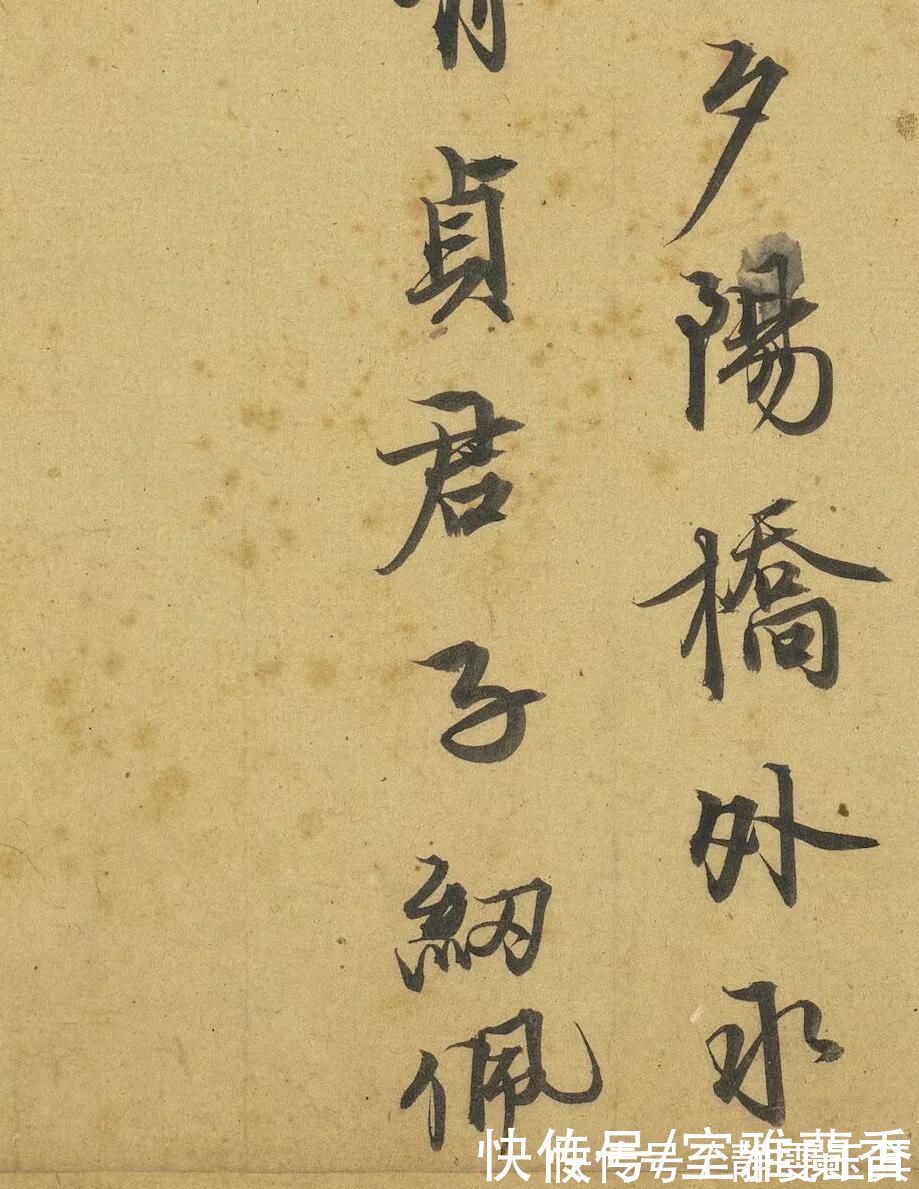 夕陽橋外永
貞君子紉佩
快传号/室雅蘭香